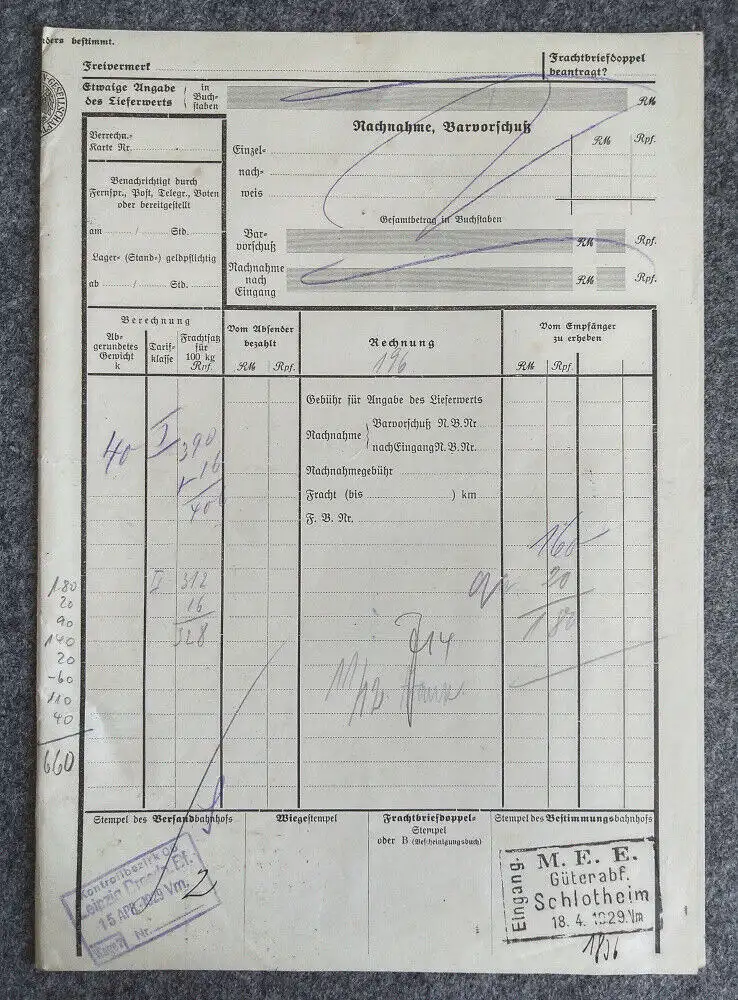 nders bestimmt.
Freivermerk
Frachtbriefdoppel
beantragt?
Etwaige Angabe
des Lieferwerts
in
Buch-
staben
RM
GESELLSCHAFT
Verrechn.-
Karte Nr.
Nachnahme, Barvorschuß
RM Rpf.
Einzel-
nach-
weis
Benachrichtigt durch
Fernspr., Post, Telegr., Boten
oder bereitgestellt
am / Std.
Lager- (Stand-) geldpflichtig
ab / Std.
Gesamtbetrag in Buchstaben
Bar-
vorschuß
RM Rpf.
Nachnahme
nach
Eingang
RM Rpf.
Berechnung
Ab-
gerundetes
Gewicht
k
Tarif-
klasse
Frachtsatz
für
100 kg
Rpf.
Vom Absender
bezahlt
RM Rpf.
Rechnung
196
Vom Empfänger
zu erheben
RM Rpf.
Gebühr für Angabe des Lieferwerts
Nachnahme
Barvorschuß N.B.Nr
nach Eingang N.B.Nr.
Nachnahmegebühr
Fracht (bis ) km
F. B. Nr.
40 I 390
16
406
160
II 312
16
328
20
180
14
180
20
90
140
20
-60
110
40
660
Stempel des Versandbahnhofs
Wiegestempel
Frachtbriefdoppel-
Stempel
oder B (Bescheinigungsbuch)
Stempel des Bestimmungsbahnhofs
Kontrollbezirk
Leipzig Dresdn. Bf.
15 APR. 1929 Vm.
Nr.
2
Eingang.
M. E. E.
Güterabf.
Schlotheim
18. 4. 1929. Vm